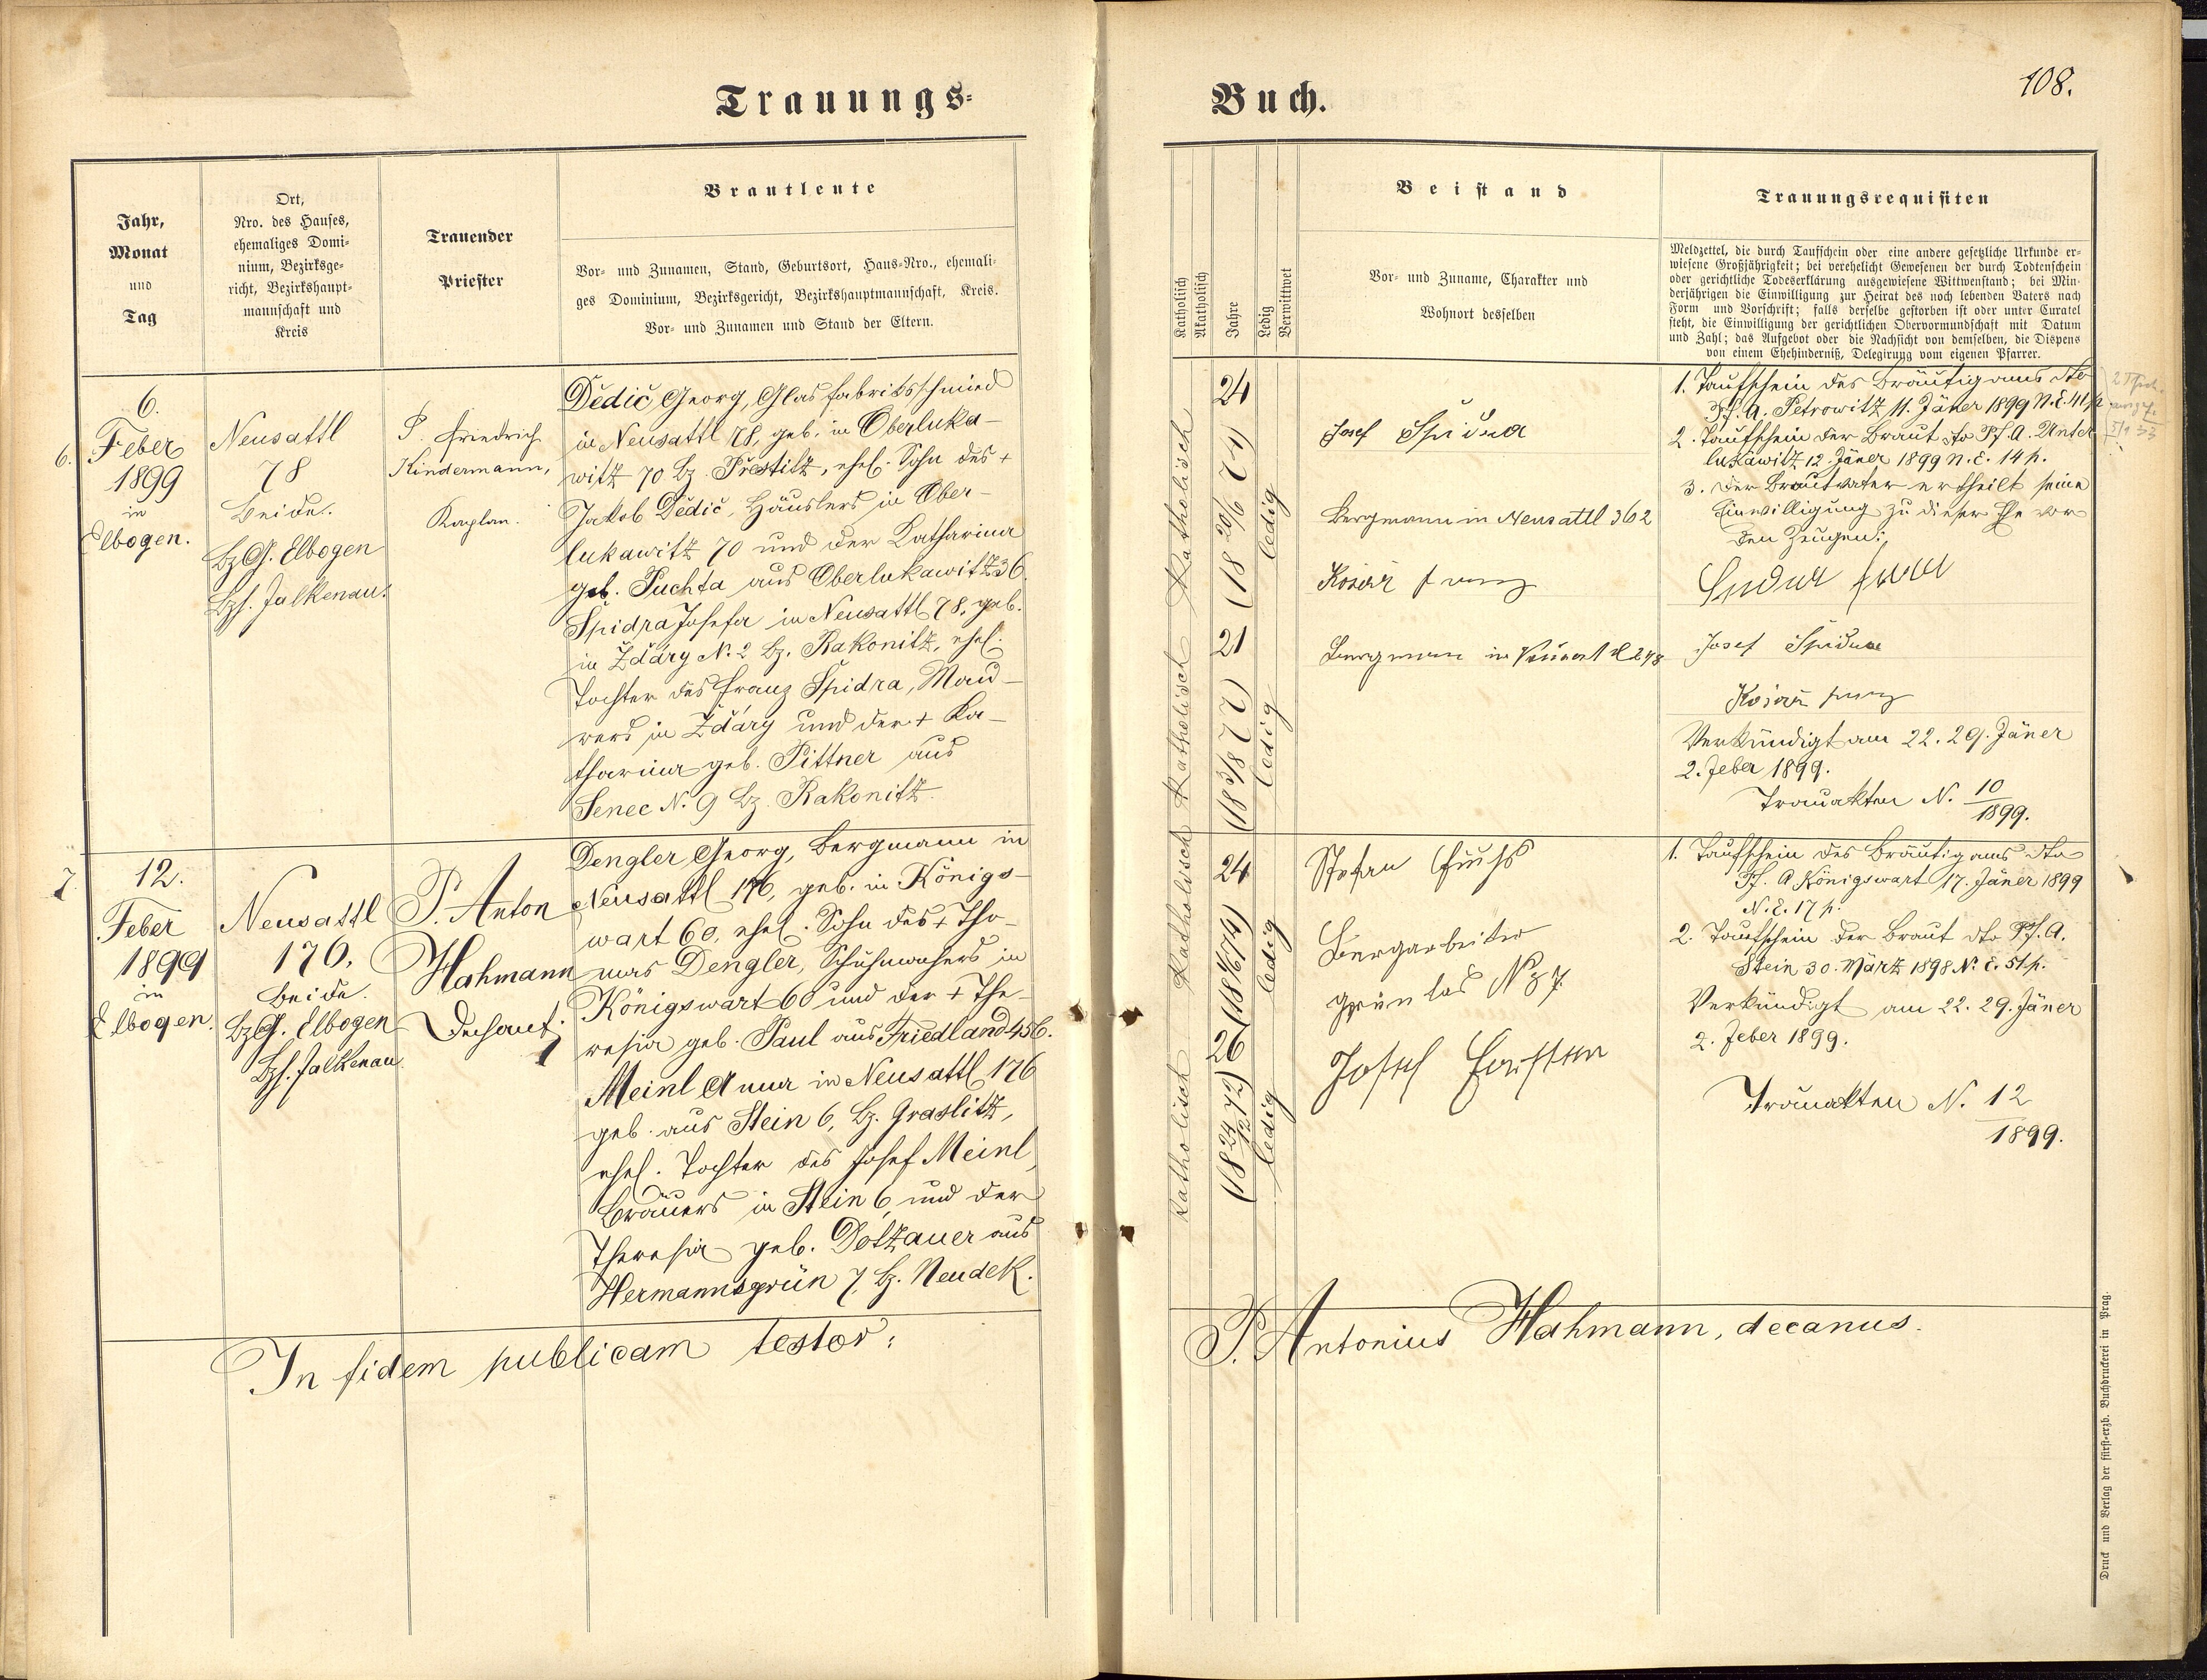 108.
Trauungs-
Buch.
Jahr,
Monat
und
Tag
Ort,
Nro. des Hauses,
ehemaliges Domi-
nium, Bezirksge-
richt, Bezirkshaupt-
mannschaft und
Kreis
Trauender
Priester
Brautleute
Vor- und Zunamen, Stand, Geburtsort, Haus-Nro., ehemali-
ges Dominium, Bezirksgericht, Bezirkshauptmannschaft, Kreis.
Vor- und Zunamen und Stand der Eltern.
Katholisch
Akatholisch
Jahre
Ledig
Verwittwet
Beistand
Vor- und Zuname, Charakter und
Wohnort desselben
Trauungsrequisiten
Meldzettel, die durch Taufschein oder eine andere gesetzliche Urkunde er-
wiesene Großjährigkeit; bei verehelicht Gewesenen der durch Todtenschein
oder gerichtliche Todeserklärung ausgewiesene Wittwenstand; bei Min-
derjährigen die Einwilligung zur Heirat des noch lebenden Vaters nach
Form und Vorschrift; falls derselbe gestorben ist oder unter Curatel
steht, die Einwilligung der gerichtlichen Obervormundschaft mit Datum
und Zahl; das Aufgebot oder die Nachsicht von demselben, die Dispens
von einem Ehehinderniß, Delegirung vom eigenen Pfarrer.
6.
6.
Feber
1899
in
Elbogen.
Neusattl
78
Beide.
BzG. Elbogen
Bzh. Falkenau.
P. Friedrich
Kindermann,
Kaplan.
Dědič Georg, Glasfabriksschmied
in Neusattl 78, geb. in Oberluka-
witz 70 Bz. Přestitz, ehel. Sohn des +
Jakob Dědič, Häuslers in Ober-
lukawitz 70 und der Katharina
geb. Puchta aus Oberlukawitz 36.
Špidra Josefa in Neusattl 78, geb.
in Ždáry N. 2 Bz. Rakonitz, ehel.
Tochter des Franz Špidra, Mau-
rers in Ždáry und der + Ka-
tharina geb. Pittner aus
Senec N. 9 Bz. Rakonitz.
Katholisch
24
(18 20/6 74)
ledig
Katholisch
21
(18 3/8 77)
ledig
Josef Špidra
Bergmann in Neusattl 362
Kosař Franz
Bergmann in Neusattl 248
1. Taufschein des Bräutigams dto
Pf. A. Petrowitz 11. Jäner 1899 N. E. 41 p.
2. Taufschein der Braut dto Pf. A. Unter
lukawitz 12. Jäner 1899 N. E. 14 p.
3. Der Brautvater ertheilt seine
Einwilligung zu dieser Ehe vor
den Zeugen:
Josef Špidra
Kosař Franz
Verkündigt am 22. 29. Jäner
2. Feber 1899.
Trauakten N. 10/1899.
7.
12.
Feber
1899
in
Elbogen.
Neusattl
176.
Beide.
BzG. Elbogen
Bzh. Falkenau
P. Anton
Hahmann
Dechant
Dengler Georg, Bergmann in
Neusattl 176, geb. in Königs-
wart 60, ehel. Sohn des + Tho-
mas Dengler, Schuhmachers in
Königswart 60 und der + The-
resia geb. Paul aus Friedland 456.
Meinl Anna in Neusattl 176
geb. aus Stein 6, Bz. Graslitz,
ehel. Tochter des Josef Meinl,
Bräuers in Stein 6 und der
Theresia geb. Dotzauer aus
Hermannsgrün 7 Bz. Neudek.
Katholisch
24
ledig
Katholisch
26
(18 24/12 72)
ledig
Stefan Fuchs
Bergarbeiter
Grünlas No 87.
Josef
1. Taufschein des Bräutigams dto
Pf. A. Königswart 17. Jäner 1899
N. E. 17 p.
2. Taufschein der Braut dto Pf. A.
Stein 30. März 1898 N. E. 51 p.
Verkündigt am 22. 29. Jäner
2. Feber 1899.
Trauakten N. 12
1899.
In fidem publicam testor:
P. Antonius Hahmann, decanus.
Druck und Verlag der fürst-erzb. Buchdruckerei in Prag.